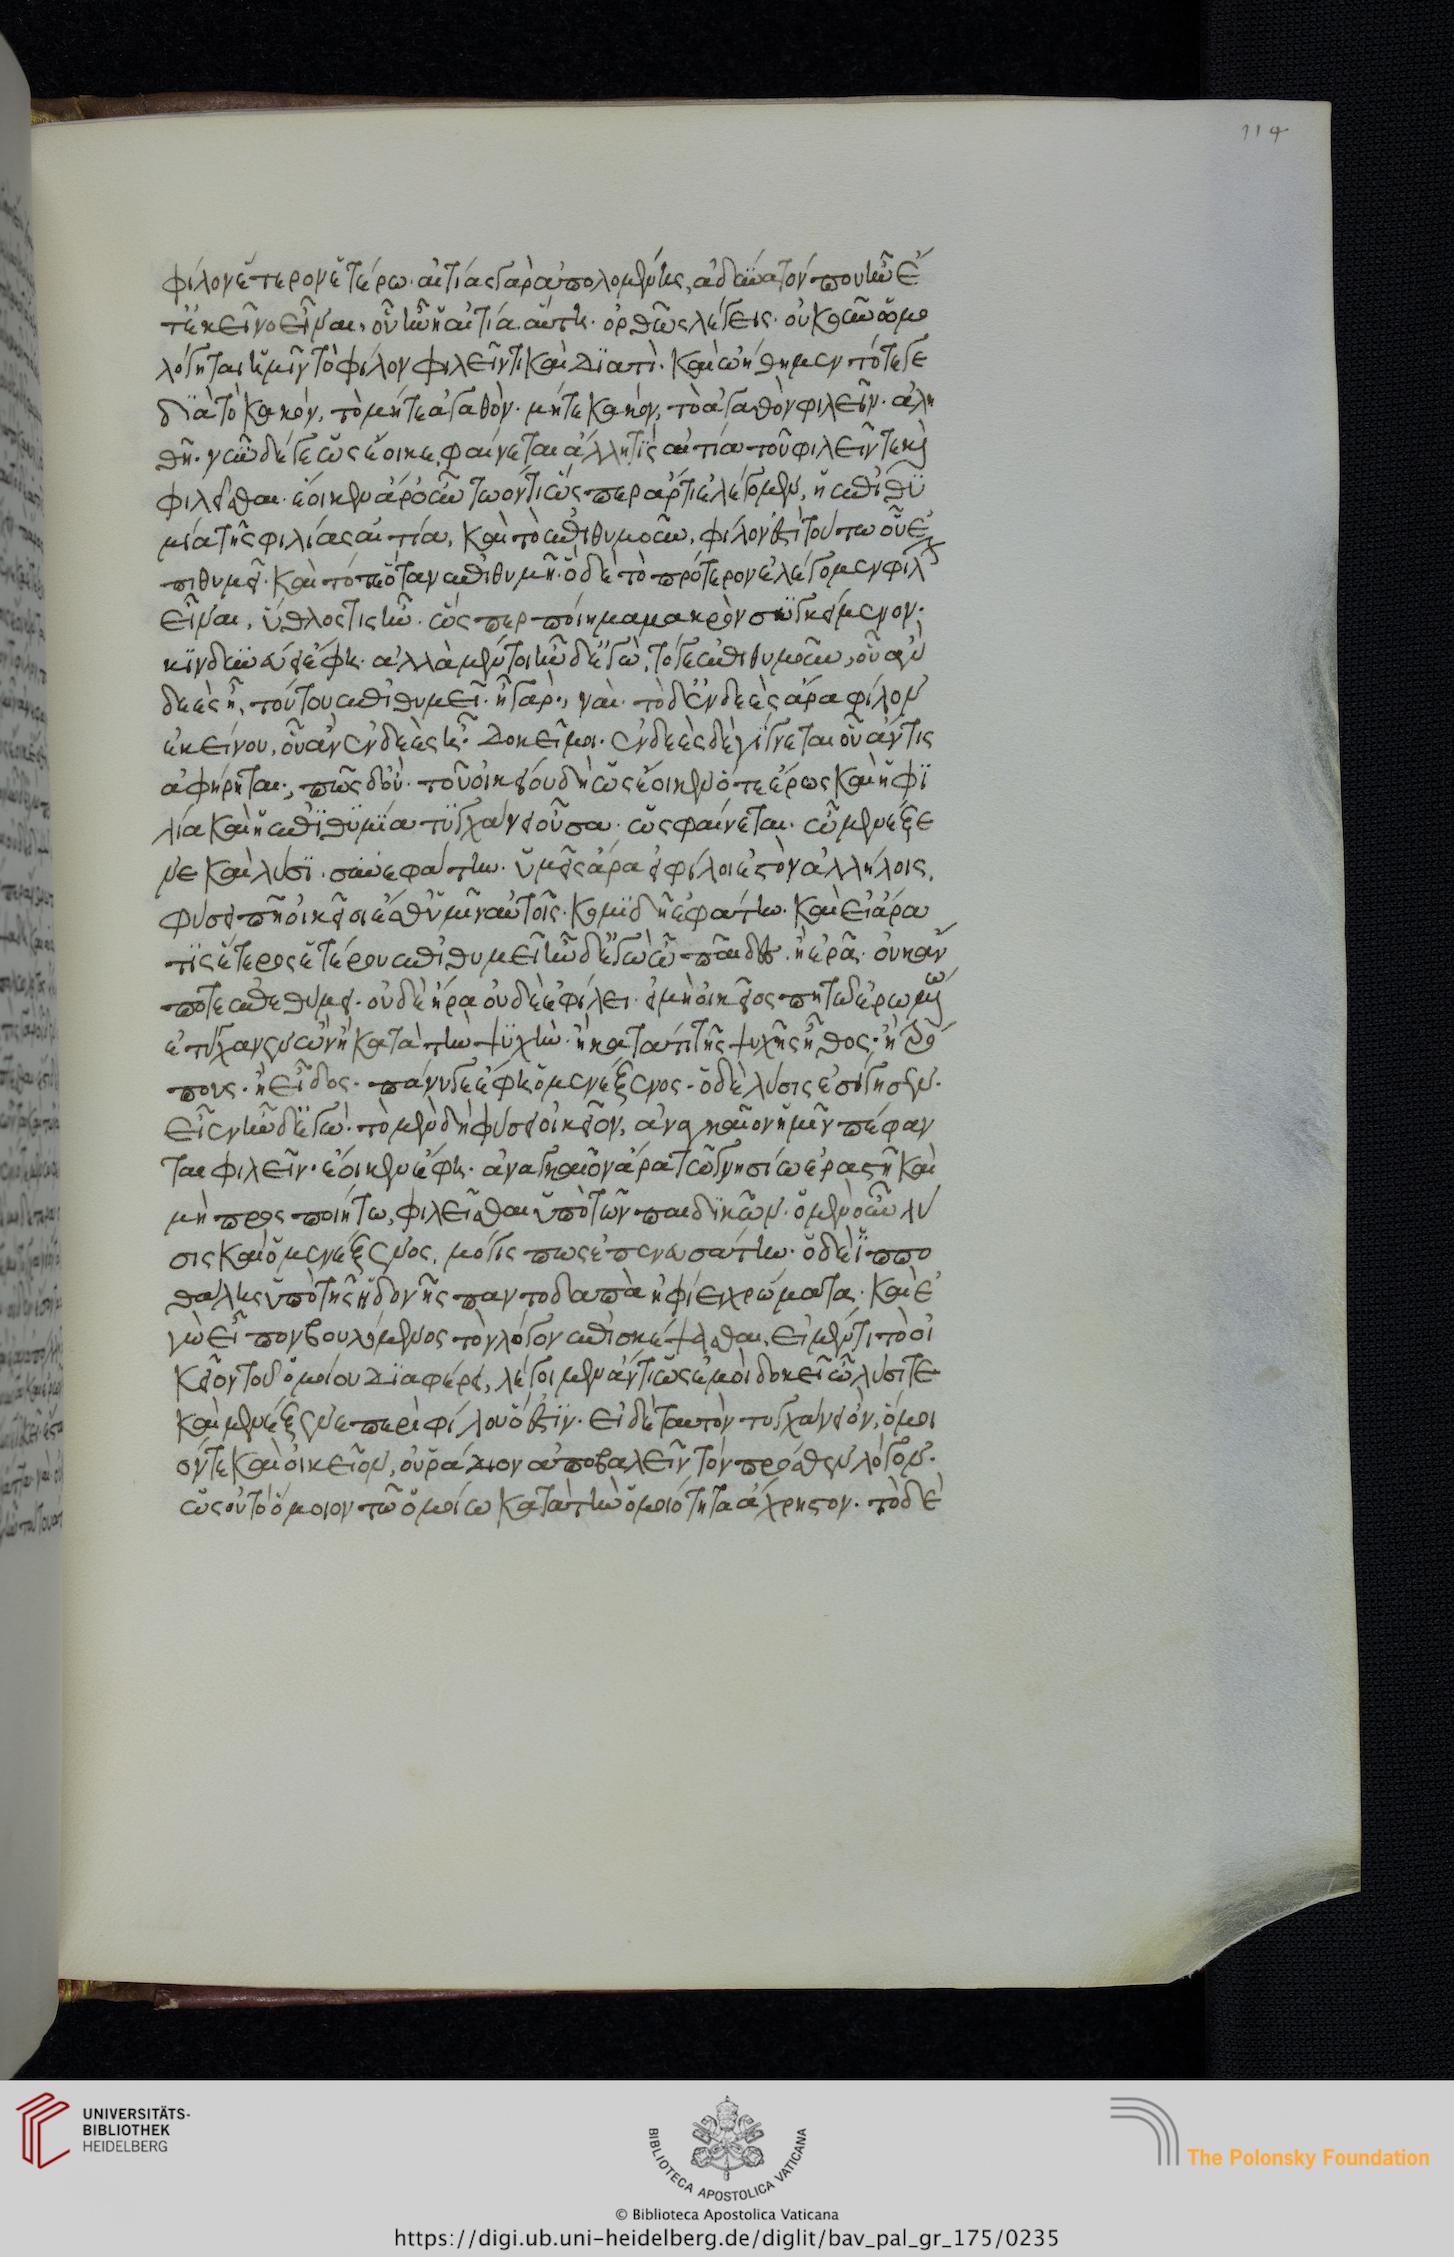 φίλον ἕτερον ἑτέρω. αἰτίας γὰρ ἀπολομένης, ἀδύνατόν που ἦν ἔ
τ' ἐκεῖνο εἶναι, οὗ ἦν ἡ αἰτία αὕτη. ὀρθῶς λέγεις. οὐκοῦν ὡμο
λόγηται ἡμῖν τὸ φίλον φιλεῖν τι καὶ διατί. καὶ ὠήθημεν τότε γε
διὰ τὸ κακὸν, τὸ μήτε ἀγαθὸν. μήτε κακὸν, τὸ ἀγαθὸν φιλεῖν. ἀλη
θῆ. νῦν δέ γε ὡς ἔοικε, φαίνεται ἄλλη τὶς αἰτία τοῦ φιλεῖν τε καὶ
φιλεῖσθαι. ἔοικεν ἆρ' οὖν τω ὄντι ὥς περ ἄρτι ἐλέγομεν, ἡ ἐπιθυ
μία τῆς φιλίας αἰτία, καὶ τὸ ἐπιθυμοῦν, φίλον ἐστὶ τούτω οὗ ἐ
πιθυμεῖ. καὶ τότε ὅταν ἐπιθυμῆ. ὃ δὲ τὸ πρότερον ἐλέγομεν φίλον
εἶναι, ὕθλος τις ἦν. ὥς περ ποίημα μακρὸν συγκείμενον.
κινδυνεύει ἔφη. ἀλλὰ μέντοι ἦν δ' ἐγὼ, τό γε ἐπιθυμοῦν, οὗ ἂν
δεὲς ῆ, τούτου ἐπιθυμεῖ. ἦ γὰρ; ναί. τὸ δ' ἐνδεὲς ἄρα φίλον
ἐκείνου, οὗ ἂν ἐνδεὲς ῆ. δοκεῖ μοι. ἐνδεὲς δὲ γίγνεται οὗ ἄν τις
ἀφήρηται; πῶς δ' οὔ. τοῦ οἰκείου δὴ ὡς ἔοικεν ὅ τε ἔρως καὶ ἡ φι
λία καὶ ἡ ἐπιθυμία τυγχάνει οὖσα. ὡς φαίνεται. ὦ μενέξε
νε καὶ λύσι. συνεφάτην. ὑμεῖς ἄρα εἰ φίλοι ἐστὸν ἀλλήλοις,
φύσει πῆ οἰκεῖοι ἐσθ' ὑμῖν αὐτοῖς. κομιδῆ ἐφάτην. καὶ εἰ ἄρα
τὶς ἕτερος ἑτέρου ἐπιθυμεῖ ἦν δ' ἐγὼ ὦ παῖδες. ἢ ἐρᾶ. οὐκ ἄν
ποτε ἐπεθύμει. οὐδὲ ἤρα οὐδὲ ἐφίλει. εἰ μὴ οἰκεῖος πη τῶ ἐρωμένω
ἐτύγχανεν ὢν ἢ κατὰ τὴν ψυχὴν. ἢ κατά τι τῆς ψυχῆς ἦθος. ἢ τρό
πους. ἢ εἶδος. πάνυ γε ἔφη ὁ μενέξενος. ὁ δὲ λύσις ἐσίγησεν.
εἶεν ἦν δ' ἐγὼ. τὸ μὲν δὴ φύσει οἰκεῖον, ἀναγκαῖον ἡμῖν πέφαν
ται φιλεῖν. ἔοικεν ἔφη. ἀναγκαῖον ἄρα τῶ γνησίω ἐραστῆ καὶ
μὴ προς ποιήτω, φιλεῖσθαι ὑπὸ τῶν παιδικῶν. ὁ μὲν οὖν λύ
σις καὶ ὁ μενέξενος, μόγις πως ἐπενευσάτην. ὁ δὲ ἱππο
θάλης ὑπὸ τῆς ἡδονῆς παντοδαπὰ ἠφίει χρώματα. καὶ ἐ
γὼ εἶπον βουλόμενος τὸν λόγον ἐπισκέψασθαι, εἰ μέν τι τὸ οἰ
κεῖον τοῦ ὁμοίου διαφέρει, λέγοιμεν ἄν τι ὡς ἐμοὶ δοκεῖ ὦ λύσι τε
καὶ μενέξενε περὶ φίλου ὅ ἐστιν. εἰ δὲ ταυτὸν τυγχάνει ὂν, ὅμοι
όν τε καὶ οἰκεῖον, οὐ ῥάδιον ἀποβαλεῖν τὸν πρόσθεν λόγον.
ὡς οὐ τὸ ὅμοιον τῶ ὁμοίω κατὰ τὴν ὁμοιότητα ἄχρηστον. τὸ δὲ
114
UNIVERSITÄTS-
BIBLIOTHEK
HEIDELBERG
BIBLIOTECA APOSTOLICA VATICANA
The Polonsky Foundation
© Biblioteca Apostolica Vaticana
https://digi.ub.uni-heidelberg.de/diglit/bav_pal_gr_175/0235